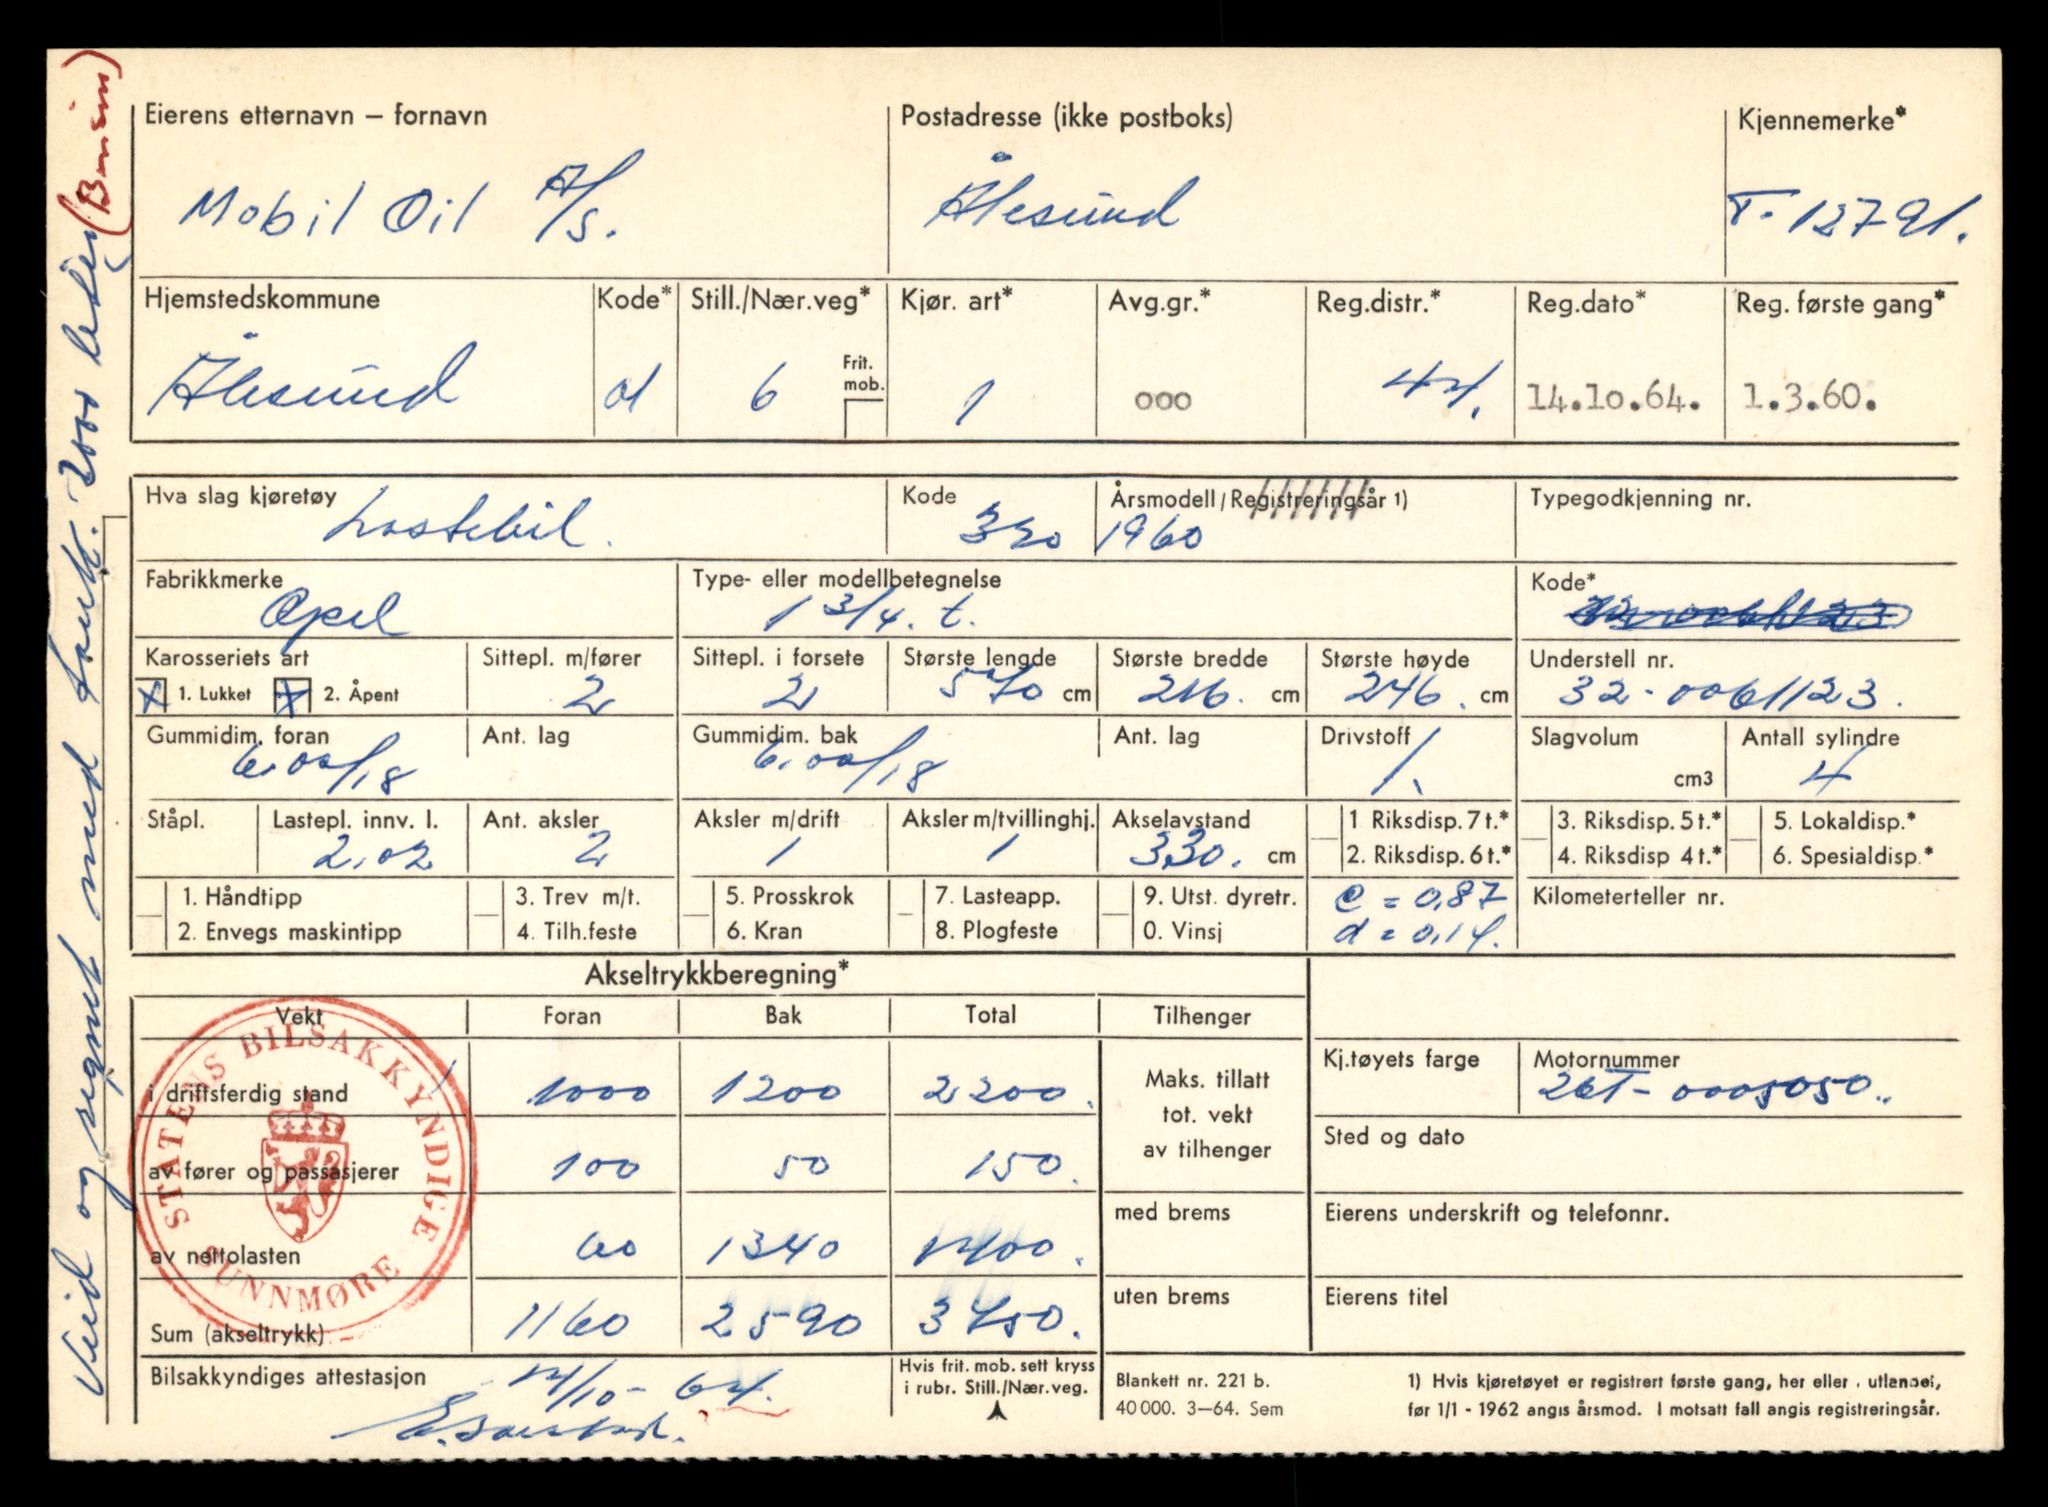 Eierens etternavn – fornavn Postadresse (ikke postboks) Kjennemerke*
Mobil Oil A/S. Ålesund T-12791.
Hjemstedskommune Kode* Still./Nær.veg* Kjør. art* Avg.gr.* Reg.distr.* Reg.dato* Reg. første gang*
Frit. mob.
Ålesund 01 6 1 000 44. 14.10.64. 1.3.60.
Hva slag kjøretøy Kode Årsmodell/Registreringsår 1) Typegodkjenning nr.
Lastebil. 320 1960
Fabrikkmerke Type- eller modellbetegnelse Kode*
Opel 1 3/4. t.
Karosseriets art Sittepl. m/fører Sittepl. i forsete Største lengde Største bredde Største høyde Understell nr.
X 1. Lukket X 2. Åpent 2 2 570 cm 216. cm 246. cm 32-0061123.
Gummidim. foran Ant. lag Gummidim. bak Ant. lag Drivstoff Slagvolum Antall sylindre
6.00/18 6.00/18 1. cm3 4
Ståpl. Lastepl. innv. l. Ant. aksler Aksler m/drift Aksler m/tvillinghj. Akselavstand 1 Riksdisp. 7 t.* 3. Riksdisp. 5 t.* 5. Lokaldisp.*
2.02 2 1 1 330. cm 2. Riksdisp. 6 t.* 4. Riksdisp 4 t.* 6. Spesialdisp.*
1. Håndtipp 3. Trev m/t. 5. Prosskrok 7. Lasteapp. 9. Utst. dyretr. c = 0,87 Kilometerteller nr.
2. Envegs maskintipp 4. Tilh.feste 6. Kran 8. Plogfeste 0. Vinsj d = 0,14.
Akseltrykkberegning*
Vekt Foran Bak Total Tilhenger
i driftsferdig stand 1000 1200 2200. Maks. tillatt tot. vekt av tilhenger Kj.tøyets farge Motornummer
26T-0005050.
av fører og passasjerer 100 50 150. Sted og dato
av nettolasten 60 1340 1400. med brems Eierens underskrift og telefonnr.
Sum (akseltrykk) 1160 2590 3750. uten brems Eierens titel
Bilsakkyndiges attestasjon 14/10-64. Hvis frit. mob. sett kryss i rubr. Still./Nær.veg.
Blankett nr. 221 b.
40 000. 3–64. Sem
1) Hvis kjøretøyet er registrert første gang, her eller i utlandet,
før 1/1 - 1962 angis årsmod. I motsatt fall angis registreringsår.
STATENS BILSAKKYNDIGE
SUNNMØRE
Veid og regnet med tank. 2000 liter (Bensin)